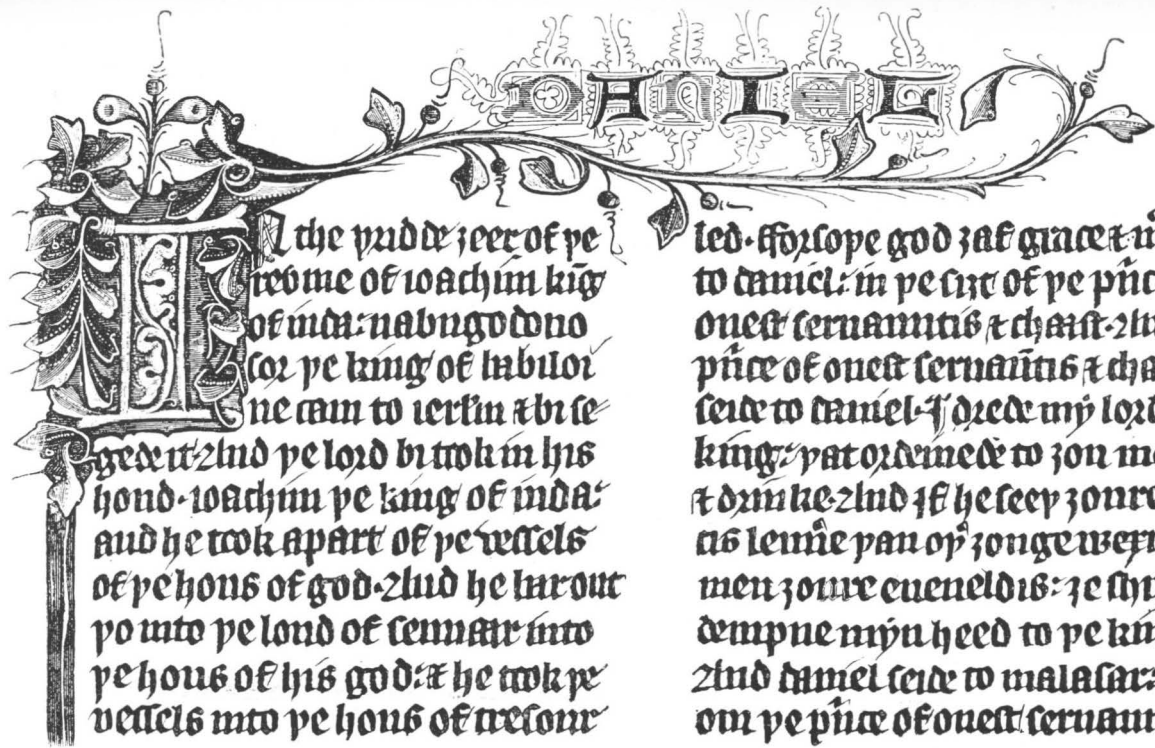 DANIEL
IN the þridde ȝeer of þe
rewme of ioachim kīg
of iuda: nabugodono
sor þe king of babiloi
ne cam to ierlm̄ & bise
gede it· And þe lord bitook in his
hond· ioachim þe king of iuda:
and he took apart of þe vessels
of þe hous of god· And he bar out
þo into þe lond of sennaar into
þe hous of his god: & he took þe
vessels into þe hous of tresour
led· fforsoþe god ȝaf grace &
to daniel: in þe siȝt of þe pn̄c
onest seruauntis & chaast·
pn̄ce of onest seruaūtis & cha
seide to daniel· I drede my lord
king: þat ordeinede to ȝou me
& drinke· And if he seeþ ȝoure
tis lenn̄e þan oþ' ȝonge wexin
men ȝoure eueneldis: ȝe shu
dempne myn heed to þe kin
And daniel seide to malasar:
om þe pn̄ce of onest seruaun